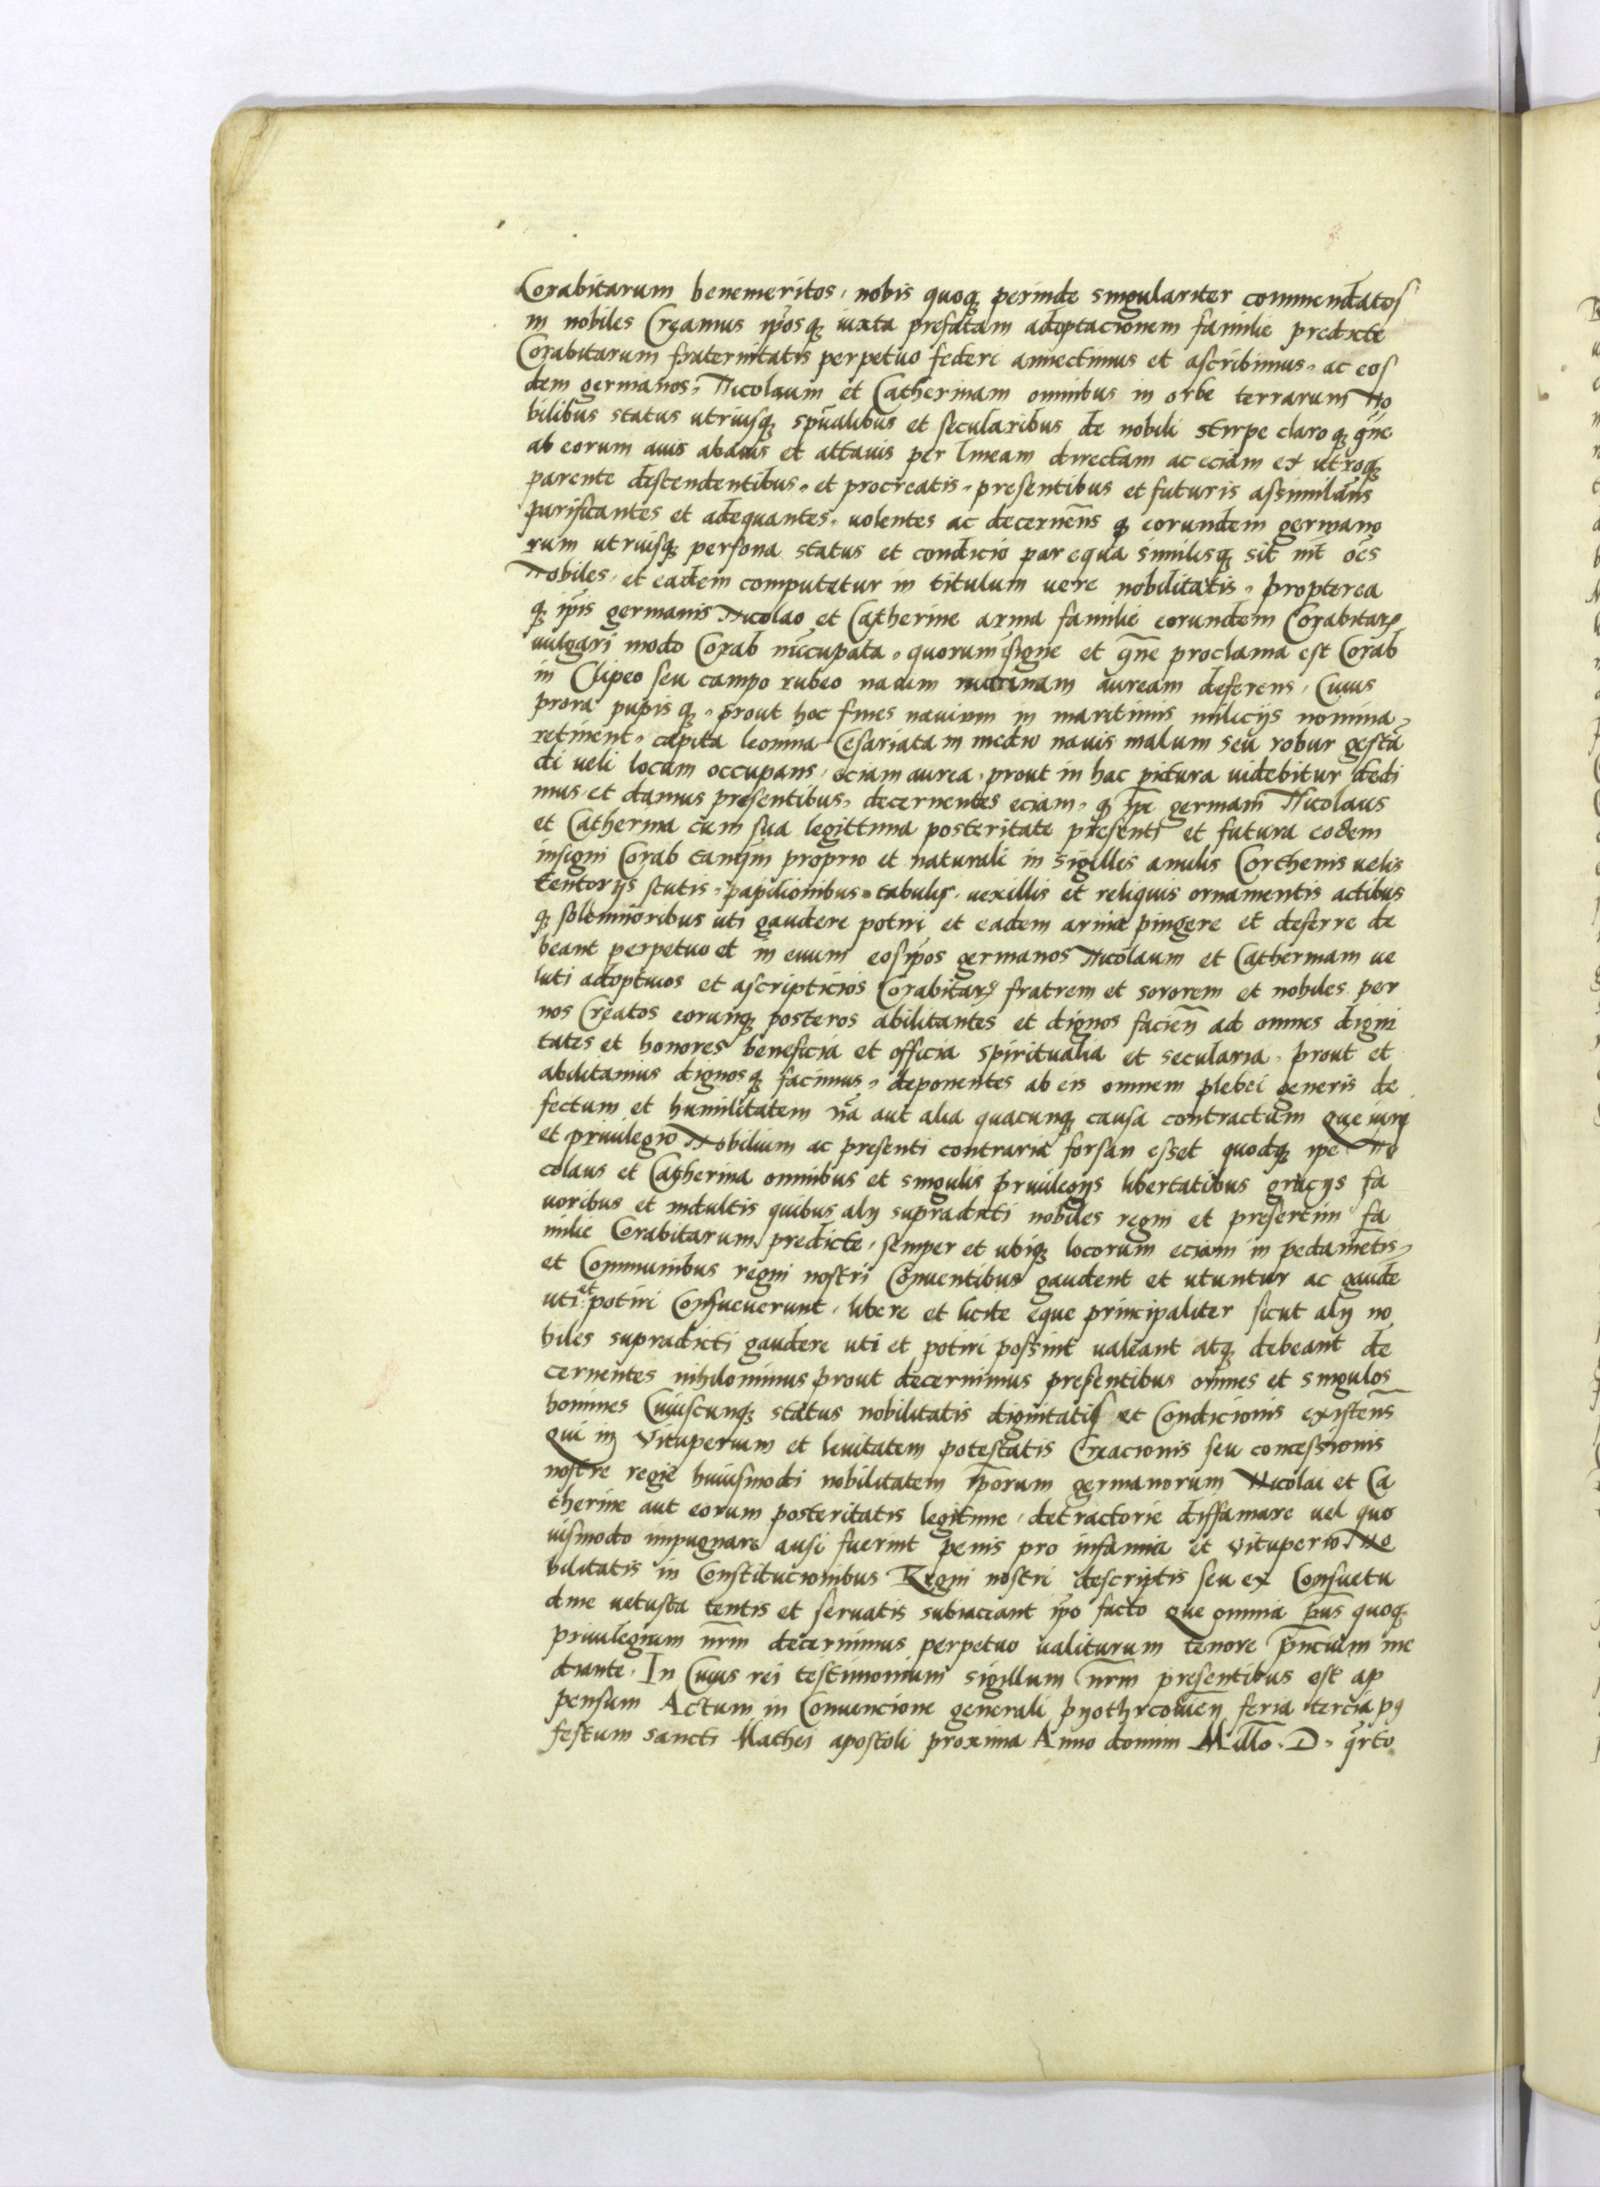 Corabitarum benemeritos, nobis quoq₃ perinde singulariter commendatos
in nobiles Creamus ip̄osq₃ iuxta prefatam adoptacionem familie predicte
Corabitarum fraternitatis perpetuo federe annectimus et ascribimus, ac eos
dem germanos, Nicolaum et Catherinam omnibus in orbe terrarum No
bilibus status utriusq₃ spūalibus et secularibus de nobili stirpe claroq₃ gn̄e
ab eorum auis abauis et attauis per lineam directam ac eciam ex utroq₃
parente descendentibus, et procreatis, presentibus et futuris assimilan̄s
parificantes et adequantes, uolentes ac decernen̄s q₃ eorundem germano
rum utriusq₃ persona status et condicio par equa similisq₃ sit int̄ oēs
Nobiles, et eadem computetur in titulum uere nobilitatis, propterea
q₃ ip̄is germanis Nicolao et Catherine arma familie eorundem Corabitarꝝ
uulgari modo Corab nūcupata, quorum īsigne et gn̄e proclama est Corab
in Clipeo seu campo rubeo nauim marinam auream deferens, Cuius
prora pupisq₃, prout hoc fines nauium in maritimis miliciis nomina
retinent, capita leonina Cesariata in medio nauis malum seu robur gestā
di ueli locum occupans, eciam aurea, prout in hac pictura uidebitur dedi
mus et damus presentibus, decernentes eciam, q₃ ip̄e germani Nicolaus
et Catherina cum sua legittima posteritate presenti et futura eodem
insigni Corab tanq̄m proprio et naturali in sigillis anulis Corthenis uelis
tentorijs scutis, papilionibus, tabulis, uexillis et reliquis ornamentis actibus
q₃ solemnioribus uti gaudere potiri et eadem arma pingere et deferre de
beant perpetuo et in euum eosip̄os germanos Nicolaum et Catherinam ue
luti adoptiuos et ascripticios Corabitarꝝ fratrem et sororem et nobiles per
nos Creatos eorumq₃ posteros abilitantes et dignos facien̄ ad omnes digni
tates et honores beneficia et officia spiritualia et secularia, prout et
abilitamus dignosq₃ facimus, deponentes ab eis omnem plebei generis de
fectum et humilitatem nā aut alia quacunq₃ causa contractum que iuri
et priuilegio Nobilium ac presenti contraria forsan esset quodq₃ ip̄e Ni
colaus et Catherina omnibus et singulis priuilegijs libertatibus gracijs fa
uoribus et indultis quibus alij supradicti nobiles regni et presertim fa
milie Corabitarum predicte, semper et ubiq₃ locorum eciam in pedametis
et Communibus regni nostri Conuentibus gaudent et utuntur ac gaude
uti et potiri Consueuerunt, libere et licite eque principaliter sicut alij no
biles supradicti gaudere uti et potiri possint ualeant atq₃ debeant de
cernentes nihilominus prout decernimus presentibus omnes et singulos
homines Cuiuscunq₃ status nobilitatis dignitatis et Condicionis existen̄s
Qui in Vituperium et leuitatem potestatis Creacionis seu concessionis
nostre regie huiusmodi nobilitatem ip̄orum germanorum Nicolai et Ca
therine aut eorum posteritatis legitime, detractorie diffamare uel quo
uismodo impugnare ausi fuerint penis pro infamia et Vituperio No
bilitatis in Constitucionibus Regni nostri descriptis seu ex Consuetu
dine uetusta tentis et seruatis subiaceant ip̄o facto Que omnia p̄ns quoq₃
priuilegium nr̄m decernimus perpetuo ualiturum tenore p̄ncium me
diante. In Cuius rei testimonium sigillum nr̄m presentibus est ap
pensum Actum in Conuencione generali pyothrcouien̄ feria tercia pꝯ
festum sancti Mathei apostoli proxima Anno domini Mill̄o. D. qr̄to